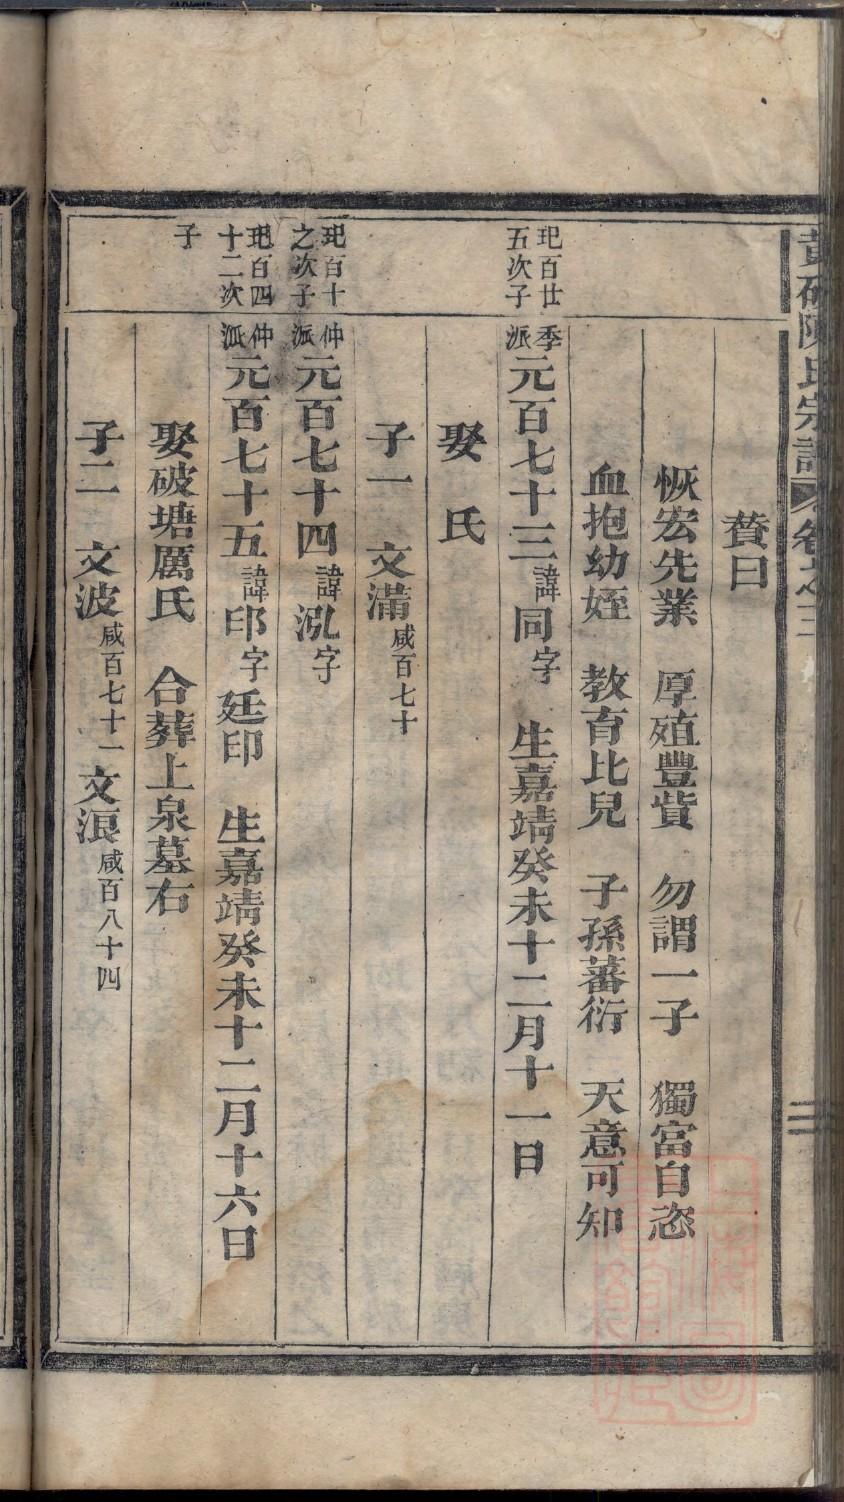 黃砂陳氏宗譜 卷之三
贊曰
恢宏先業 厚殖豐貲 勿謂一子 獨富自恣
血抱幼姪 教育比兒 子孫蕃衍 天意可知
玘百廿五次子
季派元百七十三諱同字 生嘉靖癸未十二月十一日
娶 氏
子一 文滿咸百七十
玘百十之次子
仲派元百七十四諱泓字
玘百四十二次子
仲派元百七十五諱印字廷印 生嘉靖癸未十二月十六日
娶破塘厲氏 合葬上泉墓右
子二 文波咸百七十一文浪咸百八十四